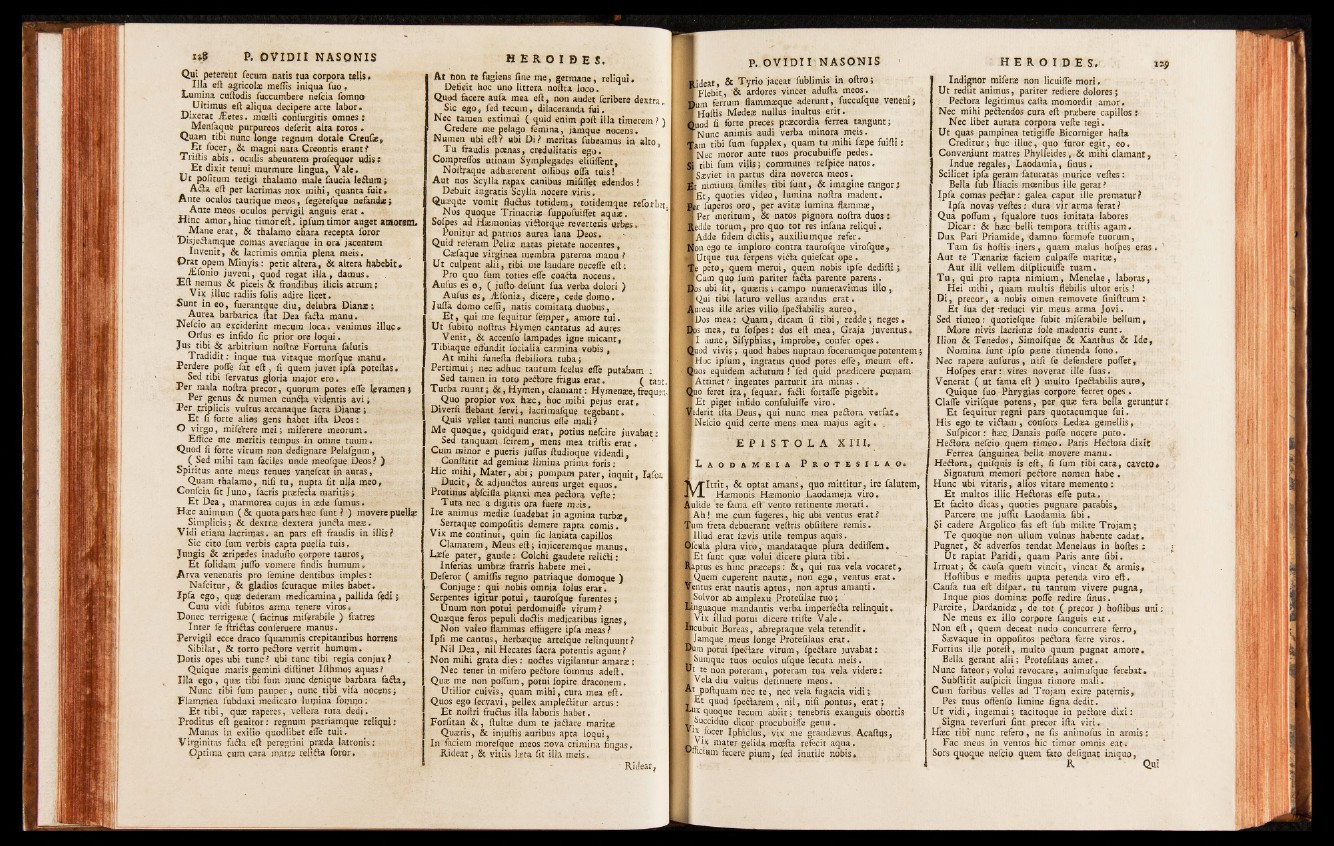 128 P. OVIDII NASONIS
Qui peterent ſecum natis tua corpora telis.
Illa eſt agricolæ meſſis iniqua ſuo.
Lumina cuſtodis ſuccumbere neſcia ſomno
Ultimus eſt aliqua decipere arte labor.
Dixerat Æetes. mœſti conſurgitis omnes:
Menſaque purpureos deſerit alta toros.
Quam tibi nunc longe regnum dotale Creuſæ,
Et ſocer, & magni nata Creontis erant?
Triſtis abis. oculis abeuntem proſequor udis:
Et dixit tenui murmure lingua, Vale.
Ut poſitum tetigi thalamo male ſaucia lectum;
Acta eſt per lacrimas nox mihi, quanta fuit.
Ante oculos taurique meos, ſegeteſque nefandæ;
Ante meos oculos pervigil anguis erat.
Hinc amor, hinc timor eſt. ipſum timor auget amorem.
Mane erat, & thalamo chara recepta ſoror
Disjectamque comas averſaque in ora jacentem
Invenit, & lacrimis omnia plena meis.
Orat opem Minyis: petit altera, & altera habebit.
Æſonio juveni, quod rogat illa, damus.
Eſt nemus & piceis & frondibus ilicis atrum;
Vix illuc radiis ſolis adire licet.
Sunt in eo, fuerantque diu, delubra Dianæ:
Aurea barbarica ſtat Dea facta manu.
Neſcio an exciderint mecum loca. venimus illuc.
Orſus es infido ſic prior ore loqui.
Jus tibi & arbitrium noſtræ Fortuna ſalutis
Tradidit: inque tua vitaque morſque manu.
Perdere poſſe ſat eſt, ſi quem juvet ipſa poteſtas.
Sed tibi ſervatus gloria major ero.
Per mala noſtra precor, quorum potes eſſe levamen;
Per genus & numen cuncta videntis avi;
Per triplicis vultus arcanaque ſacra Dianæ;
Et ſi forte alios gens habet iſta Deos:
O virgo, miſerere mei; miſerere meorum.
Effice me meritis tempus in omne tuum.
Quod ſi forte virum non dedignare Pelaſgum,
( Sed mihi tam faciles unde meoſque Deos? )
Spiritus ante meus tenues vaneſcat in auras,
Quam thalamo, niſi tu, nupta ſit ulla meo,
Conſcia ſit Juno, ſacris præfecta maritis;
Et Dea, marmorea cujus in æde ſumus.
Hæc animum ( & quota pars hæc ſunt? ) movere puellæ
Simplicis; & dextræ dextera juncta meæ.
Vidi etiam lacrimas. an pars eſt fraudis in illis?
Sic cito ſum verbis capta puella tuis.
Jungis & æripedes inaduſto corpore tauros,
Et ſolidam juſſo vomere findis humum.
Arva venenatis pro ſemine dentibus imples:
Naſcitur, & gladios ſcutaque miles habet.
Ipſa ego, quæ dederam medicamina, pallida ſedi;
Cum vidi ſubitos arma tenere viros.
Donec terrigenæ ( facinus miſerabile ) fratres
Inter ſe ſtrictas conſeruere manus.
Pervigil ecce draco ſquammis crepitantibus horrens
Sibilat, & torto pectore verrit humum.
Dotis opes ubi tunc? ubi tunc tibi regia conjux?
Quique maris gemini diſtinet Iſthmos aquas?
Illa ego, quæ tibi ſum nunc denique barbara facta,
Nunc tibi ſum pauper, nunc tibi viſa nocens;
Flammea ſubduxi medicato lumina ſomno:
Et tibi, quæ raperes, vellera tuta dedi.
Proditus eſt genitor: regnum patriamque reliqui:
Munus in exilio quodlibet eſſe tuit.
Virginitas facta eſt peregrini præda latronis:
Optima cum cara matre relicta ſoror.
HEROIDES.
At non te fugiens ſine me, germane, reliqui.
Deficit hoc uno littera noſtra loco.
Quod facere auſa mea eſt, non audet ſcribere dextra.
Sic ego, ſed tecum, dilaceranda fui.
Nec tamen extimui ( quid enim poſt illa timerem? )
Credere me pelago femina, jamque nocens.
Numen ubi eſt? ubi Di? meritas ſubeamus in alto,
Tu fraudis pœnas, credulitatis ego.
Compreſſos utinam Symplegades eliſiſſent,
Noſtraque adhærerent oſſibus oſſa tuis!
Aut nos Scylla rapax canibus miſiſſet edendos!
Debuit ingratis Scylla nocere viris.
Quæque vomit fluctus totidem, totidemque reſorbet,
Nos quoque Trinacriæ ſuppoſuiſſet aquæ.
Soſpes ad Hæmonias victorque reverteris urbes.
Ponitur ad patrios aurea lana Deos.
Quid referam Peliæ natas pietate nocentes,
Cæſaque virginea membra paterna manu?
Ut culpent alii, tibi me laudare neceſſe eſt:
Pro quo ſum toties eſſe coacta nocens.
Auſus es o, ( juſto deſunt ſua verba dolori )
Auſus es, Æſonia, dicere, cede domo.
Juſſa domo ceſſi, natis comitata duobus,
Et, qui me ſequitur ſemper, amore tui.
Ut ſubito noſtras Hymen cantatus ad aures
Venit, & accenſo lampades igne micant,
Tibiaque effundit ſocialia carmina vobis,
At mihi funeſta flebiliora tuba;
Pertimui; nec adhuc tantum ſcelus eſſe putabam:
Sed tamen in toto pectore frigus erat.
Turba ruunt; &, Hymen, clamant: Hymenæe, frequen-
( tant.
Quo propior vox hæc, hoc mihi pejus erat.
Diverſi flebant ſervi, lacrimaſque tegebant.
Quis vellet tanti nuncius eſſe mali?
Me quoque, quidquid erat, potius neſcire juvabat:
Sed tanquam ſcirem, mens mea triſtis erat.
Cum minor e pueris juſſus ſtudioque videndi,
Conſtitit ad geminæ limina prima foris;
Hic mihi, Mater, abi; pompam pater, inquit, Iaſon
Ducit, & adjunctos aureus urget equos.
Protinus abſciſſa planxi mea pectora veſte:
Tuta nec a digitis ora fuere meis.
Ire animus mediæ ſuadebat in agmina turbæ,
Sertaque compoſitis demere rapta comis.
Vix me continui, quin ſic laniata capillos
Clamarem, Meus eſt; injiceremque manus.
Læſe pater, gaude: Colchi gaudete relicti:
Inferias umbræ fratris habete mei.
Deſeror ( amiſſis regno patriaque domoque )
Conjuge: qui nobis omnia ſolus erat.
Serpentes igitur potui, tauroſque furentes;
Unum non potui perdomuiſſe virum?
Quæque feros pepuli doctis medicatibus ignes,
Non valeo flammas effugere ipſa meas?
Ipſi me cantus, herbæque arteſque relinquunt?
Nil Dea, nil Hecates ſacra potentis agunt?
Non mihi grata dies: noctes vigilantur amaræ:
Nec tener in miſero pectore ſomnus adeſt.
Quæ me non poſſum, potui ſopire draconem.
Utilior cuivis, quam mihi, cura mea eſt.
Quos ego ſervavi, pellex amplectitur artus:
Et noſtri fructus illa laboris habet.
Forſitan &, ſtultæ dum te jactare maritæ
Quæris, & injuſtis auribus apta loqui,
In faciem moreſque meos nova crimina fingas.
Rideat, & vitiis læta ſit illa meis.
Rideat,
P. OVIDII NASONIS
Rideat, & Tyrio jaceat ſublimis in oſtro;
Flebit, & ardores vincet aduſta meos.
Dum ferrum flammæque aderunt, ſuccuſque veneni;
Hoſtis Medeæ nullus inultus erit.
Quod ſi forte preces præcordia ferrea tangunt;
Nunc animis audi verba minora meis.
Tam tibi ſum ſupplex, quam tu mihi ſæpe fuiſti:
Nec moror ante tuos procubuiſſe pedes.
Si tibi ſum vilis; communes reſpice natos.
Sæviet in partus dira noverca meos.
Et nimium ſimiles tibi ſunt, & imagine tangor;
Et, quoties video, lumina noſtra madent.
Per ſuperos oro, per avitæ lumina flammæ,
Per meritum, & natos pignora noſtra duos:
Redde torum, pro quo tot res inſana reliqui.
Adde fidem dictis, auxiliumque refer.
Non ego te imploro contra tauroſque viroſque,
Utque tua ſerpens victa quieſcat ope.
Te peto, quem merui, quem nobis ipſe dediſti;
Cum quo ſum pariter facta parente parens.
Dos ubi ſit, quæris; campo numeravimus illo,
Qui tibi laturo vellus arandus erat.
Aureus ille aries villo ſpectabilis aureo,
Dos mea: Quam, dicam ſi tibi, redde; neges.
Dos mea, tu ſoſpes: dos eſt mea, Graja juventus.
I nunc, Siſyphias, improbe, confer opes.
Quod vivis; quod habes nuptam ſocerumque potentem;
Hoc ipſum, ingratus quod potes eſſe, meum eſt.
Quos equidem acturum! ſed quid prædicere pœnam
Attinet? ingentes parturit ira minas.
Quo feret ira, ſequar. facti fortaſſe pigebit.
Et piget infido conſuluiſſe viro.
Viderit iſta Deus, qui nunc mea pectora verſat.
Neſcio quid certe mens mea majus agit.
EPISTOLA XIII.
LAODAMEIA PROTESILAO.
MIttit, & optat amans, quo mittitur, ire ſalutem,
Hæmonis Hæmonio Laodameja viro.
Aulide te fama eſt vento retinente morari.
Ah! me cum fugeres, hic ubi ventus erat?
Tum freta debuerant veſtris obſiſtere remis.
Illud erat ſævis utile tempus aquis.
Oſcula plura viro, mandataque plura dediſſem.
Et ſunt quæ volui dicere plura tibi.
Raptus es hinc præceps: &, qui tua vela vocaret,
Quem cuperent nautæ, non ego, ventus erat.
Ventus erat nautis aptus, non aptus amanti.
Solvor ab amplexu Proteſilae tuo;
Linguaque mandantis verba imperfecta relinquit.
Vix illud potui dicere triſte Vale.
Incubuit Boreas, abreptaque vela tetendit.
Jamque meus longe Proteſilaus erat.
Dum potui ſpectare virum, ſpectare juvabat:
Sumque tuos oculos uſque ſecuta meis.
Ut te non poteram, poteram tua vela videre:
Vela diu vultus detinuere meos.
At poſtquam nec te, nec vela fugacia vidi;
Et quod ſpectarem, nil, niſi pontus, erat;
Lux quoque tecum abiit; tenebris exanguis obortis
Succiduo dicor procubuiſſe genu.
Vix ſocer Iphiclus, vix me grandævus Acaſtus,
Vix mater gelida mœſta refecit aqua.
Officium fecere pium, ſed inutile nobis.
HEROIDES. 129
Indignor miſeræ non licuiſſe mori.
Ut rediit animus, pariter rediere dolores;
Pectora legitimus caſta momordit amor.
Nec mihi pectendos cura eſt præbere capillos:
Nec libet aurata corpora veſte tegi.
Ut quas pampinea tetigiſſe Bicorniger haſta
Creditur; huc illuc, quo furor egit, eo.
Conveniunt matres Phylleides, & mihi clamant,
Indue regales, Laodamia, ſinus.
Scilicet ipſa geram ſaturatas murice veſtes:
Bella ſub Iliacis mœnibus ille gerat?
Ipſa comas pectar: galea caput ille prematur?
Ipſa novas veſtes: dura vir arma ferat?
Qua poſſum, ſqualore tuos imitata labores
Dicar: & hæc belli tempora triſtis agam.
Dux Pari Priamide, damno formoſe tuorum,
Tam ſis hoſtis iners, quam malus hoſpes eras.
Aut te Tænariæ faciem culpaſſe maritæ,
Aut illi vellem diſplicuiſſe tuam.
Tu, qui pro rapta nimium, Menelae, laboras,
Hei mihi, quam multis flebilis ultor eris!
Di, precor, a nobis omen removete ſiniſtrum:
Et ſua det reduci vir meus arma Jovi.
Sed timeo: quotieſque ſubit miſerabile bellum,
More nivis lacrimæ ſole madentis eunt.
Ilion & Tenedos, Simoiſque & Xanthus & Ide,
Nomina ſunt ipſo pæne timenda ſono.
Nec rapere auſurus, niſi ſe defendere poſſet,
Hoſpes erat: vires noverat ille ſuas.
Venerat ( ut fama eſt ) multo ſpectabilis auro,
Quique ſuo Phrygias corpore ferret opes.
Claſſe viriſque potens, per quæ fera bella geruntur:
Et ſequitur regni pars quotacumque ſui.
His ego te victam, conſors Ledæa gemellis,
Suſpicor: hæc Danais poſſe nocere puto.
Hectora neſcio quem timeo. Paris Hectora dixit
Ferrea ſanguinea bella movere manu.
Hectora, quiſquis is eſt, ſi ſum tibi cara, caveto.
Signatum memori pectore nomen habe.
Hunc ubi vitaris, alios vitare memento:
Et multos illic Hectoras eſſe puta.
Et facito dicas, quoties pugnare parabis,
Parcere me juſſit Laodamia ſibi.
Si cadere Argolico fas eſt ſub milite Trojam;
Te quoque non ullum vulnus habente cadat.
Pugnet, & adverſos tendat Menelaus in hoſtes:
Ut rapiat Paridi, quam Paris ante ſibi.
Irruat; & cauſa quem vincit, vincat & armis.
Hoſtibus e mediis nupta petenda viro eſt.
Cauſa tua eſt diſpar. tu tantum vivere pugna,
Inque pios dominæ poſſe redire ſinus.
Parcite, Dardanidæ, de tot ( precor ) hoſtibus uni:
Ne meus ex illo corpore ſanguis eat.
Non eſt, quem deceat nudo concurrere ferro,
Sævaque in oppoſitos pectora ferre viros.
Fortius ille poteſt, multo quum pugnat amore.
Bella gerant alii; Proteſilaus amet.
Nunc fateor; volui revocare, animuſque ferebat.
Subſtitit auſpicii lingua timore mali.
Cum foribus velles ad Trojam exire paternis,
Pes tuus offenſo limine ſigna dedit.
Ut vidi, ingemui; tacitoque in pectore dixi:
Signa reverſuri ſint precor iſta viri.
Hæc tibi nunc refero, ne ſis animoſus in armis:
Fac meus in ventos hic timor omnis eat.
Sors quoque neſcio quem fato deſignat iniquo,
R Qui